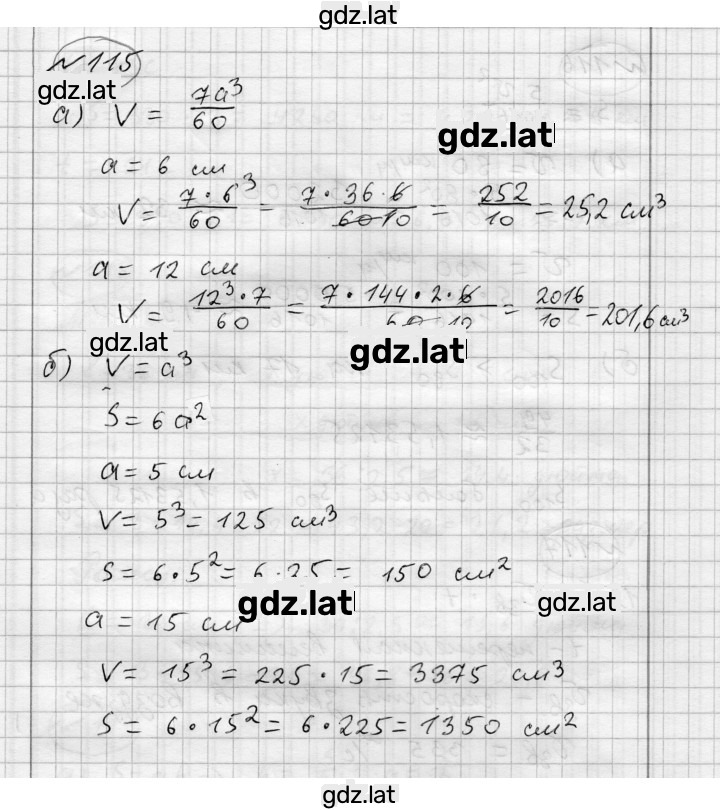 gdz.lat
№115
gdz.lat
а) V = 7a³/60
gdz.lat
a = 6 см
V = 7·6³/60 = 7·36·6/60 10 = 252/10 = 25,2 см³
a = 12 см
V = 12³·7/60 = 7·144·2·6/60 10 = 2016/10 = 201,6 см³
gdz.lat
gdz.lat
б) V = a³
S = 6a²
a = 5 см
V = 5³ = 125 см³
S = 6·5² = 6·25 = 150 см²
gdz.lat
gdz.lat
a = 15 см
V = 15³ = 225·15 = 3375 см³
S = 6·15² = 6·225 = 1350 см²
gdz.lat